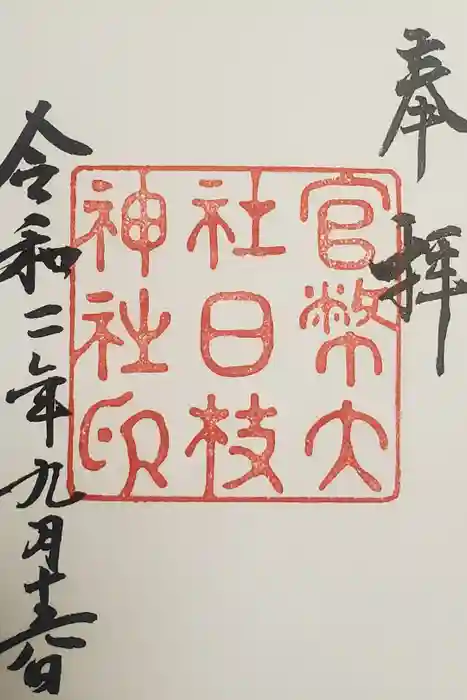 奉拝
官幣大
社日枝
神社印
令和二年九月十六日